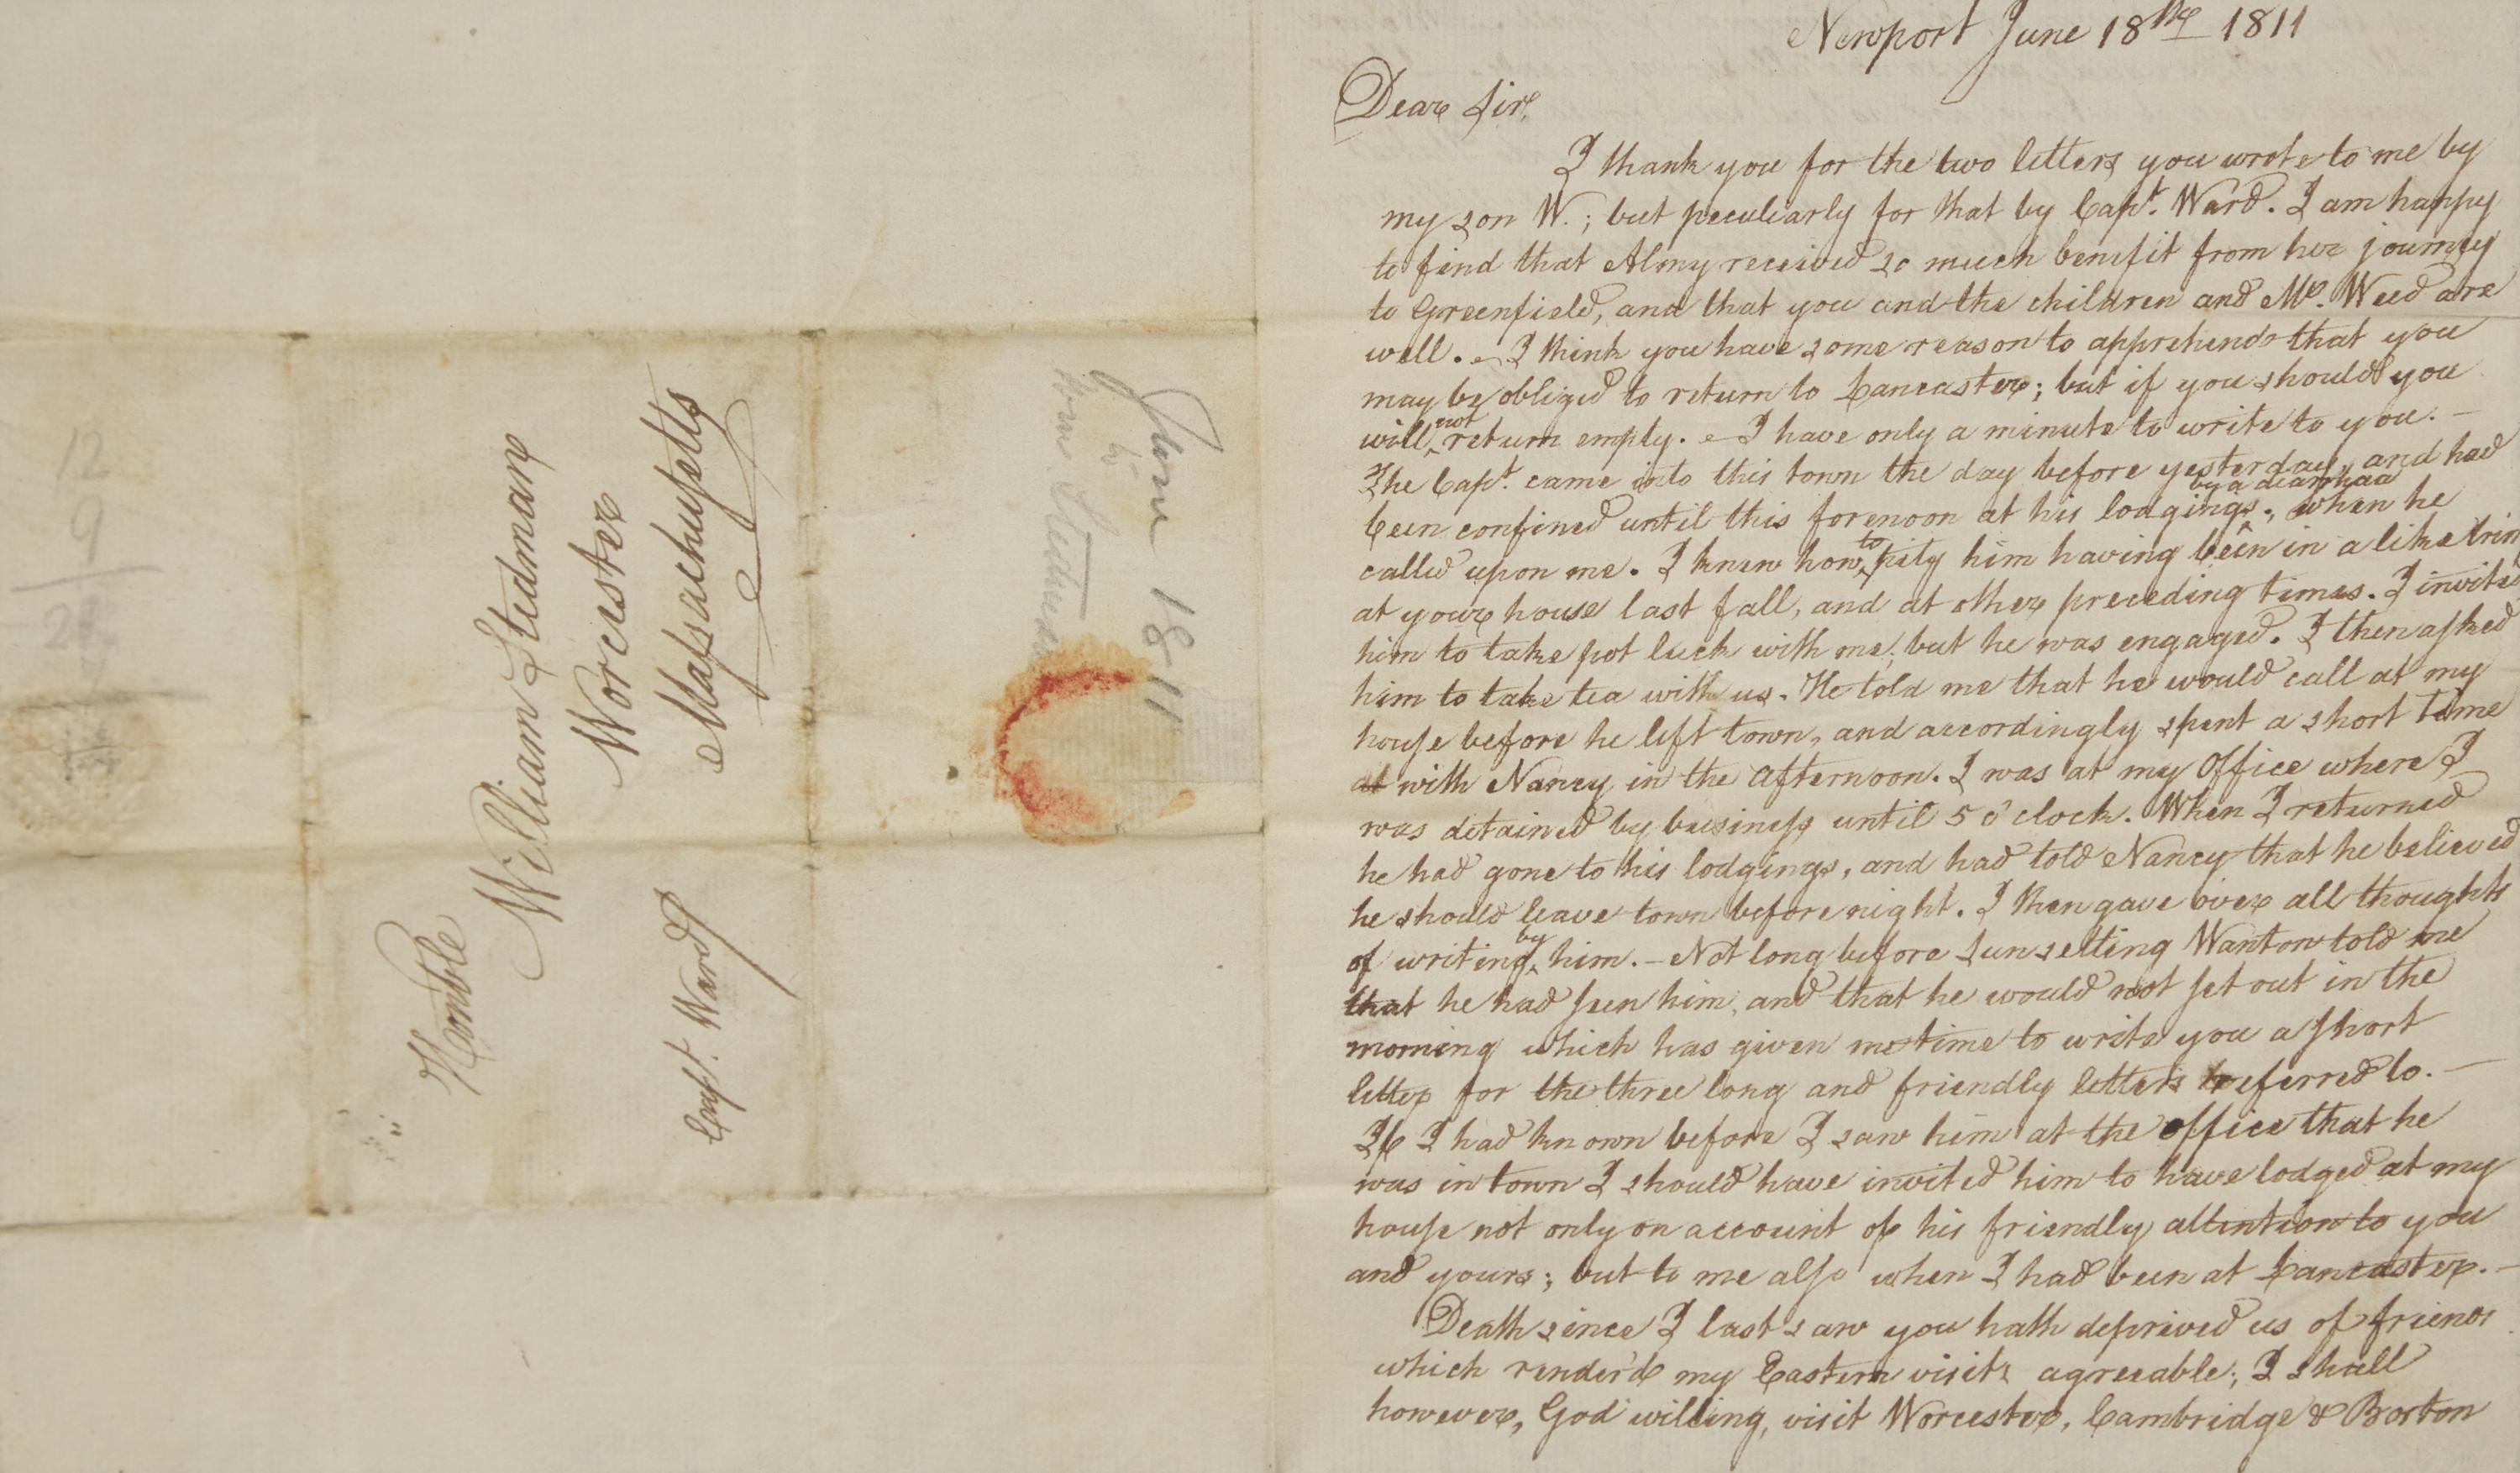 Newport June 18th 1811
Dear Sir,
I thank you for the two letters you wrote to me by
my son W.; but peculiarly for that by Capt. Ward. I am happy
to find that Almy received so much benefit from her journey
to Greenfield, and that you and the children and Mr. Weed are
well. – I think you have some reason to apprehend that you
may be obliged to return to Lancaster; but if you should you
will not return empty. – I have only a minute to write to you. –
The Capt. came into this town the day before yesterday, and had
been confined until this forenoon at his lodgings by a diarrhaa, when he
called upon me. I knew how to pity him having been in a like trim
at your house last fall, and at other preceding times. I invited
him to take pot luck with me; but he was engaged. I then asked
him to take tea with us. He told me that he would call at my
house before he left town, and accordingly spent a short time
at with Nancy in the afternoon. I was at my Office where I
was detained by business until 5 o'clock. When I returned
he had gone to his lodgings, and had told Nancy that he believed
he should leave town before night. I then gave over all thoughts
of writing by him. – Not long before sun setting Wanton told me
that he had seen him, and that he would not set out in the
morning which has given me time to write you a short
letter for the three long and friendly letters referred to. –
If I had known before I saw him at the office that he
was in town I should have invited him to have lodged at my
house not only on account of his friendly attention to you
and yours; but to me also when I had been at Lancaster. –
Death since I last saw you hath deprived us of friends
which render'd my Eastern visits agreeable; I shall
however, God willing, visit Worcester, Cambridge & Boston
Honble
William Stedman
Worcester
Massachusetts
Capt. Ward
June 1811
Stedman
12
9